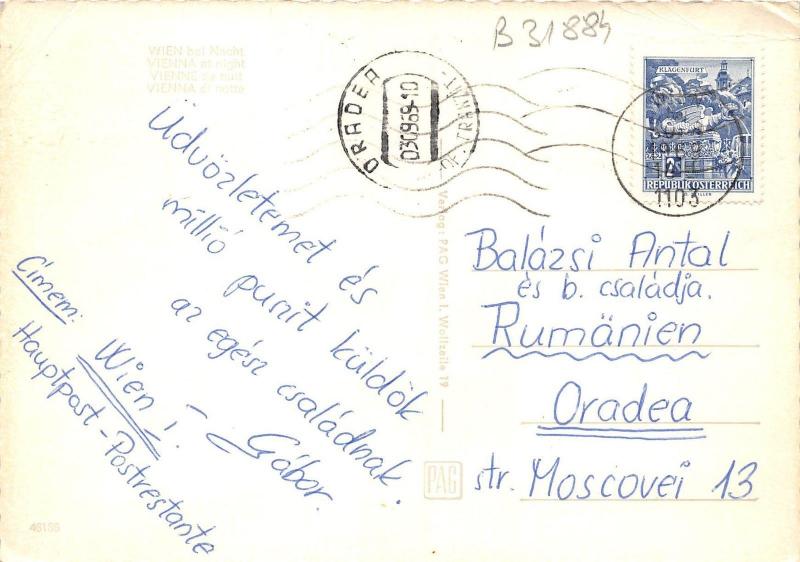 B 31884
WIEN bei Nacht
VIENNA at night
VIENNE de nuit
VIENNA di notte
ORADEA
030969-10
KLAGENFURT
2S
REPUBLIK ÖSTERREICH
1103
Üdvözletemet és
millió puszit küldök
az egész családnak.
Gábor.
Címem:
Wien I.
Hauptpost-Postrestante
Verlag: PAG Wien I, Wollzeile 19
PAG
Balázsi Antal
és b. családja.
Rumänien
Oradea
str. Moscovei 13